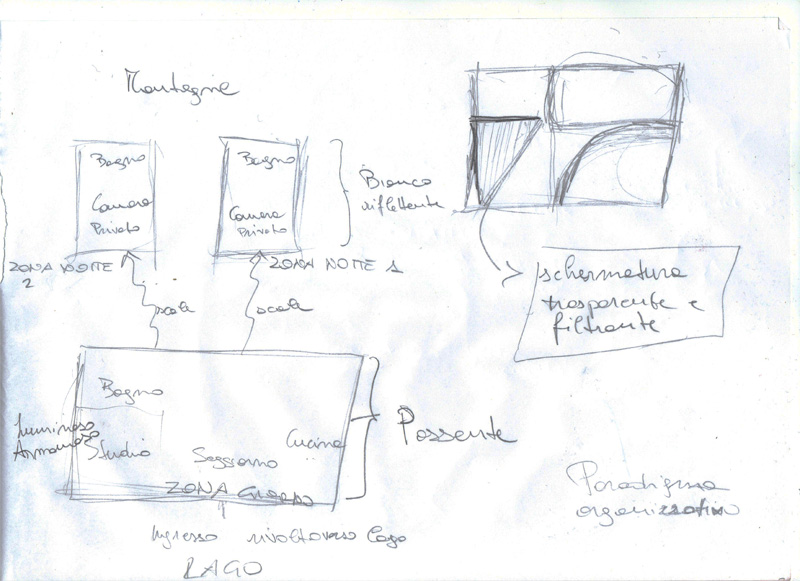 Montagne
Bagno
Camera
Privato
Bagno
Camera
Privato
Bianco
riflettente
ZONA NOTTE
2
ZONA NOTTE 1
scale
scale
schermatura
trasparente e
filtrante
Bagno
Luminoso
Armonioso
Studio
Soggiorno
Cucina
ZONA GIORNO
Possente
Ingresso rivolto verso lago
LAGO
Paradigma
organizzativo